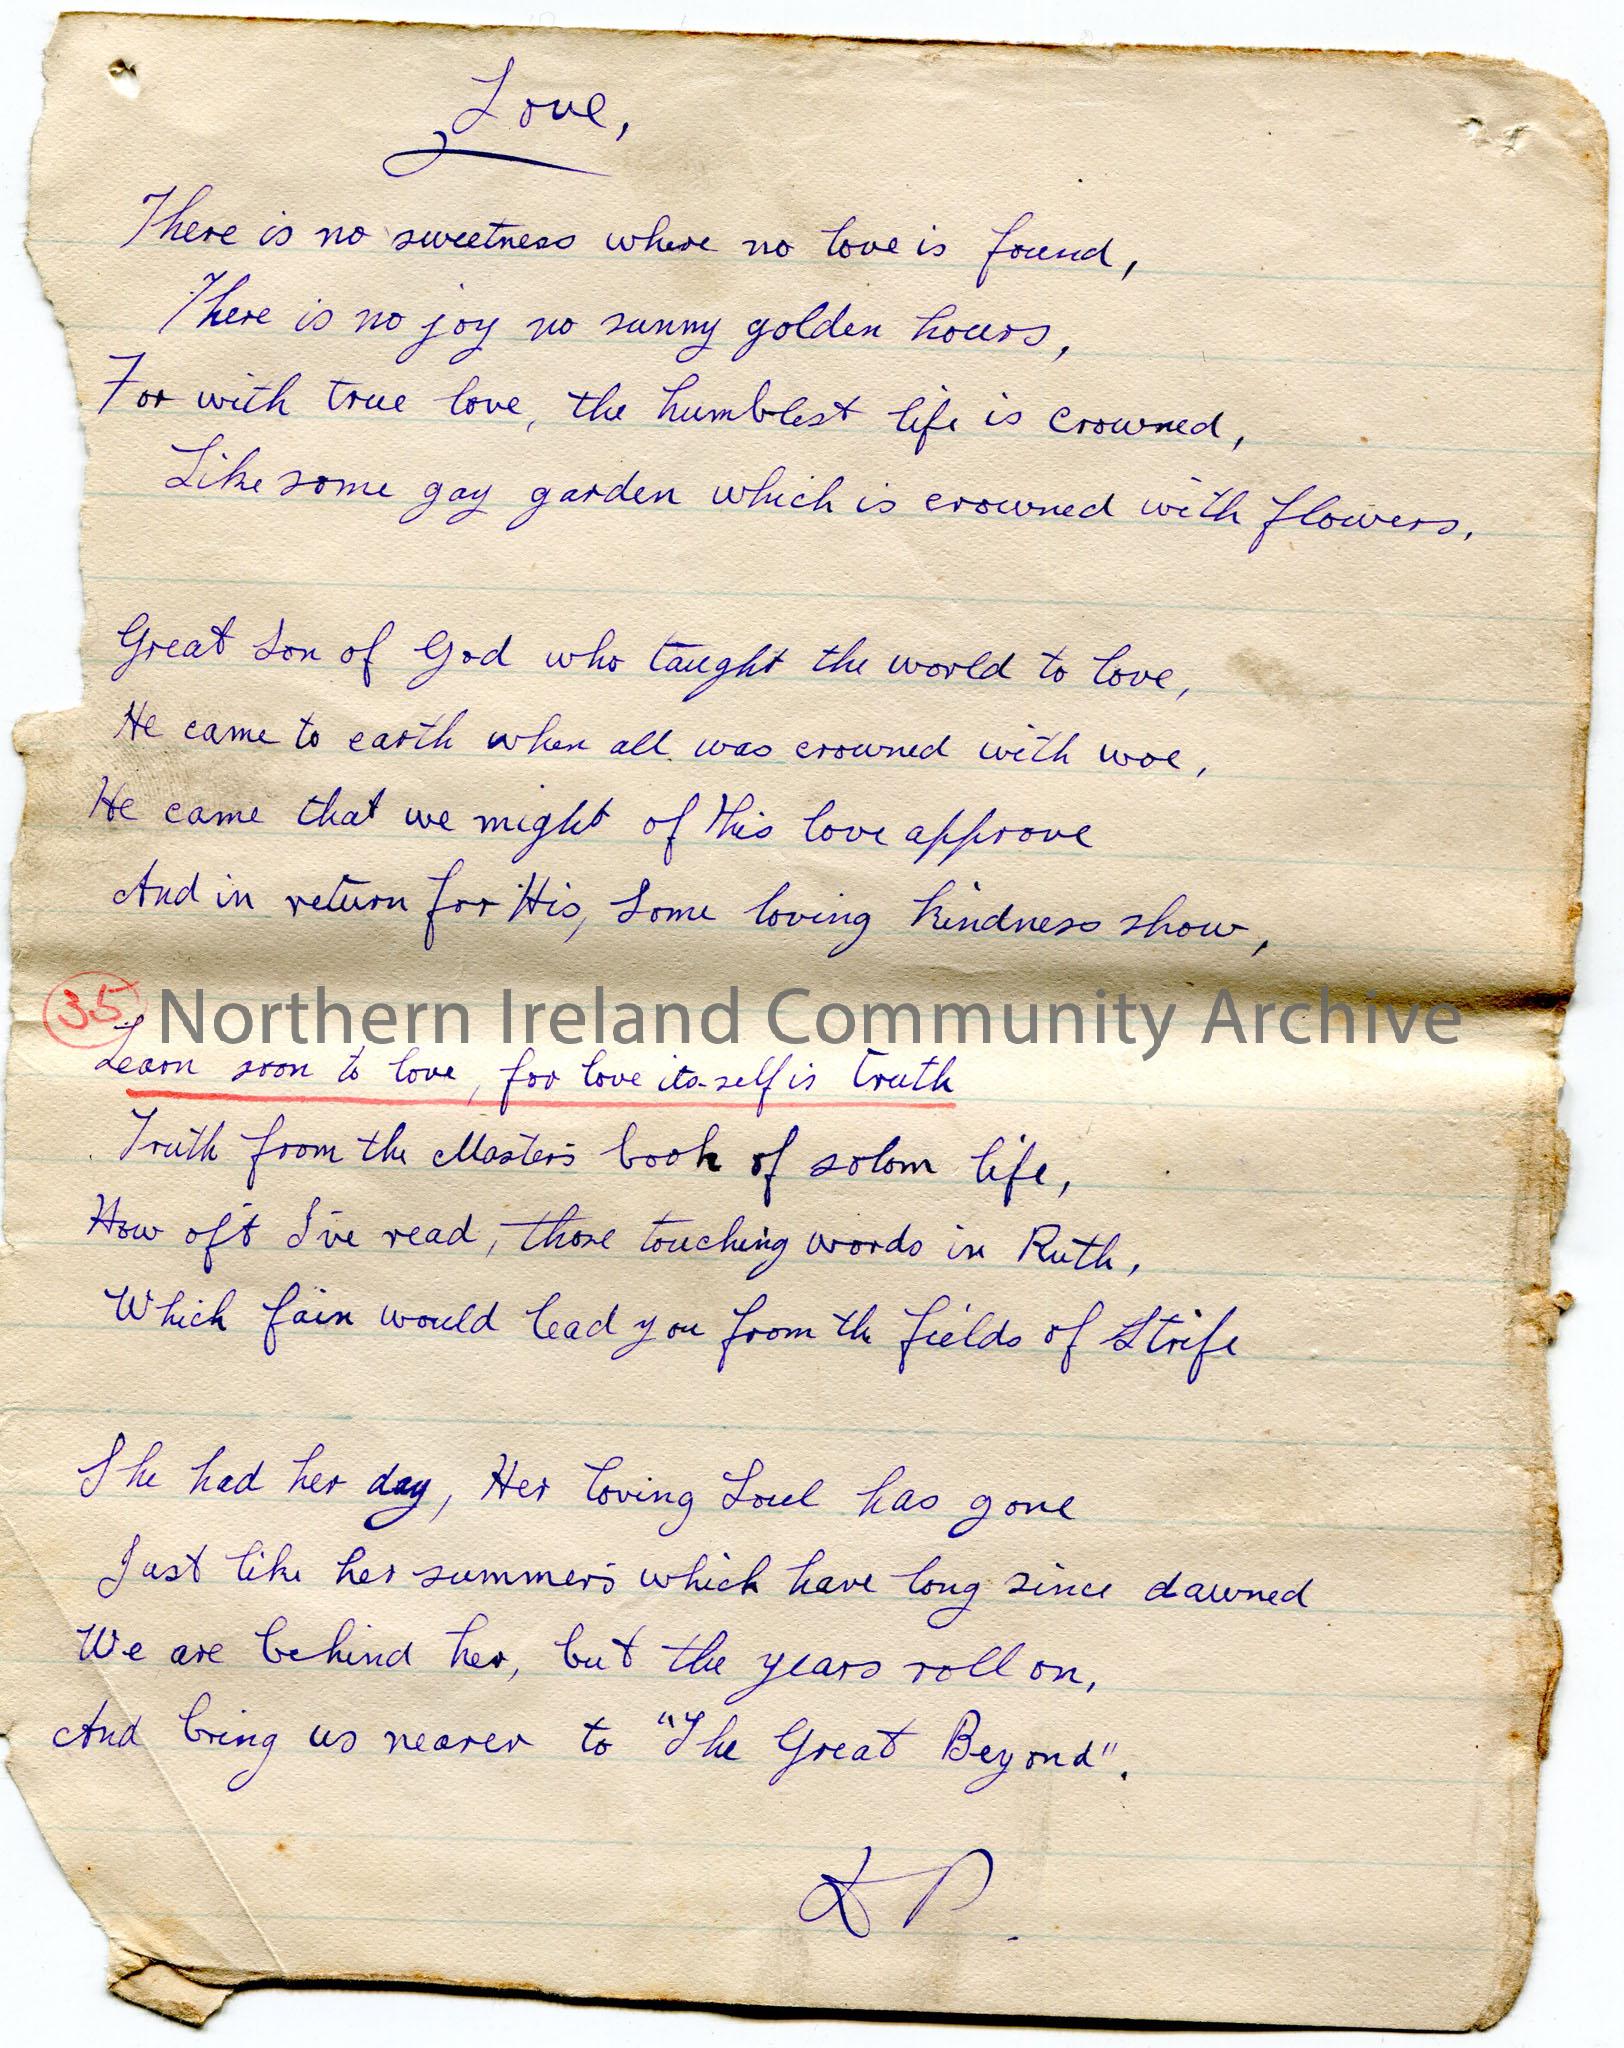 Love,
There is no sweetness where no love is found,
There is no joy no sunny golden hours,
For with true love, the humblest life is crowned,
Like some gay garden which is crowned with flowers.
Great Son of God who taught the world to love,
He came to earth when all was crowned with woe,
He came that we might of His love approve
And in return for His, Some loving kindness show,
35 Northern Ireland Community Archive
Learn soon to love, for love its-self is Truth
Truth from the Master's book of solom life,
How oft I've read, those touching words in Ruth,
Which fain would lead you from th fields of Strife
She had her day, Her loving Soul has gone
Just like her summers which have long since dawned
We are behind her, but the years roll on,
And bring us nearer to "The Great Beyond".